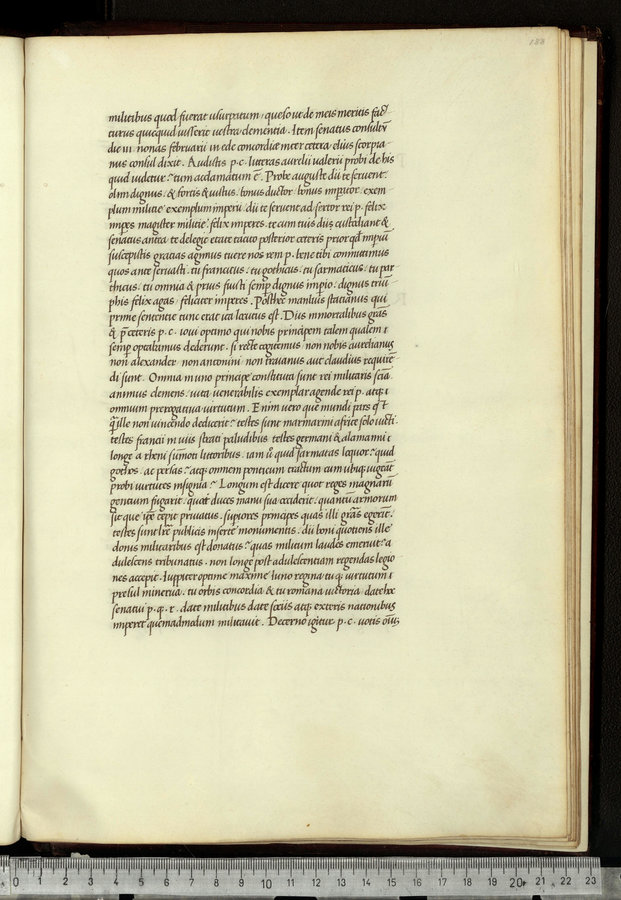 188
militibus quod fuerat usurpatum: queso ue de meis meritis fac
turus quicquid iusserit uestra clementia. Item senatus consultū
die iii nonas februarii in ede concordiæ inter cetera elius scorpia
nus consul dixit. Audistis p.c. litteras aurelii ualerii probi de his
quid uidetur? tum acclamatum ē. Probe auguste dii te seruent.
olim dignus. & fortis & iustus. bonus ductor bonus imperator. exem
plum militie exemplum imperii. dii te seruent adsertor rei p. felix
imperes magister militie. felix imperes. te cum tuis diis custodiant &
senatus antea te delegit etate tacito posterior ceteris prior qd̄ imperiū
suscepistis gratias agimus tuere nos rem p. bene tibi committimus
quos ante seruasti. tu francicus. tu gothicus. tu sarmaticus. tu par
thicus. tu omnia & prius fuisti semp̄ dignus imperio. dignus triū
phis felix agas. feliciter imperes. Post hec manlius statianus qui
prime sententie tunc erat ita locutus est. Diis immortalibus grās
& p̄ ceteris p.c. ioui optimo qui nobis principem talem qualem
semp̄ optabamus dederunt. si recte cogitemus non nobis aurelianus
non alexander non antonini non traianus aut claudius requirē
di sunt. Omnia in uno principe constituta sunt rei militaris sciā
animus clemens. uita uenerabilis exemplar agende rei p. atq
omnium prerogatiua uirtutum. Enim uero que mundi pars est
q̄ ille non uincendo dedicerit? testes sunt marmarini africe solo uicti.
testes franci in uiis strati paludibus testes germani & alamanni
longe a rheni summoti littoribus. iam u° quid sarmatas loquor? quid
gothos. ac persas? atq omnem ponticum tractum cum ubiq uigeāt
probi uirtutis insignia? Longum est dicere quot reges magnarū
gentium fugarit. quot duces manu sua occiderit. quantū armorum
sit que ip̄e cepit priuatus. supiores principes quas illi grās egerīt.
testes sunt lrē publicis inserte monumentis. dii boni quotiens ille
donis militaribus est donatus? quas militum laudes emeruit? a
dulescens tribunatus. non longe post adulescentiam regendas legio
nes accepit. Iuppiter optime maxime Iuno regina tuq uirtutum
presul minerua. tu orbis concordia & tu romana uictoria date hoc
senatui p.q.r. date militibus date sociis atq exteris nationibus
imperet quemadmodum militauit. Decerno igitur p.c. uotis om̄s
0 1 2 3 4 5 6 7 8 9 10 11 12 13 14 15 16 17 18 19 20 21 22 23